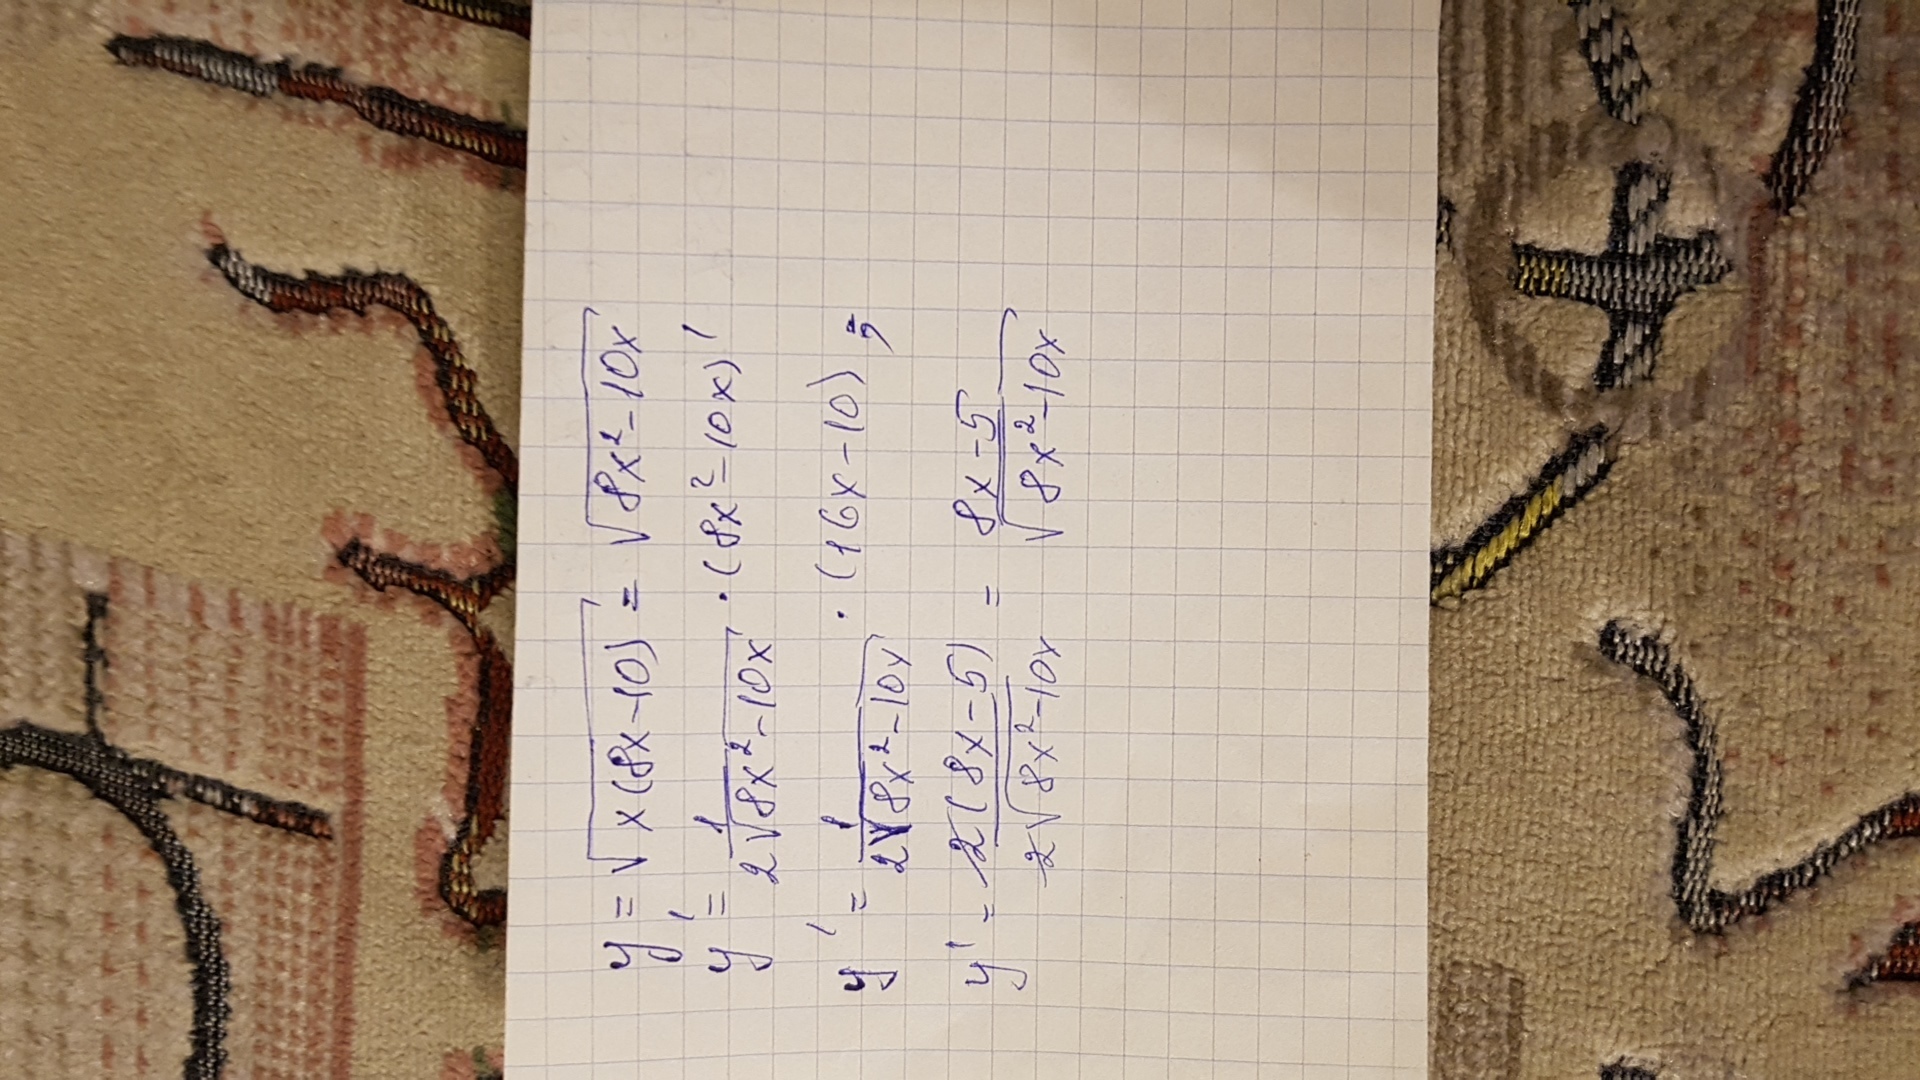 y = √(x(8x-10)) = √(8x²-10x)
y' = 1/(2√(8x²-10x)) · (8x²-10x)'
y' = 1/(2√(8x²-10x)) · (16x-10);
y' = 2(8x-5)/(2√(8x²-10x)) = (8x-5)/√(8x²-10x)